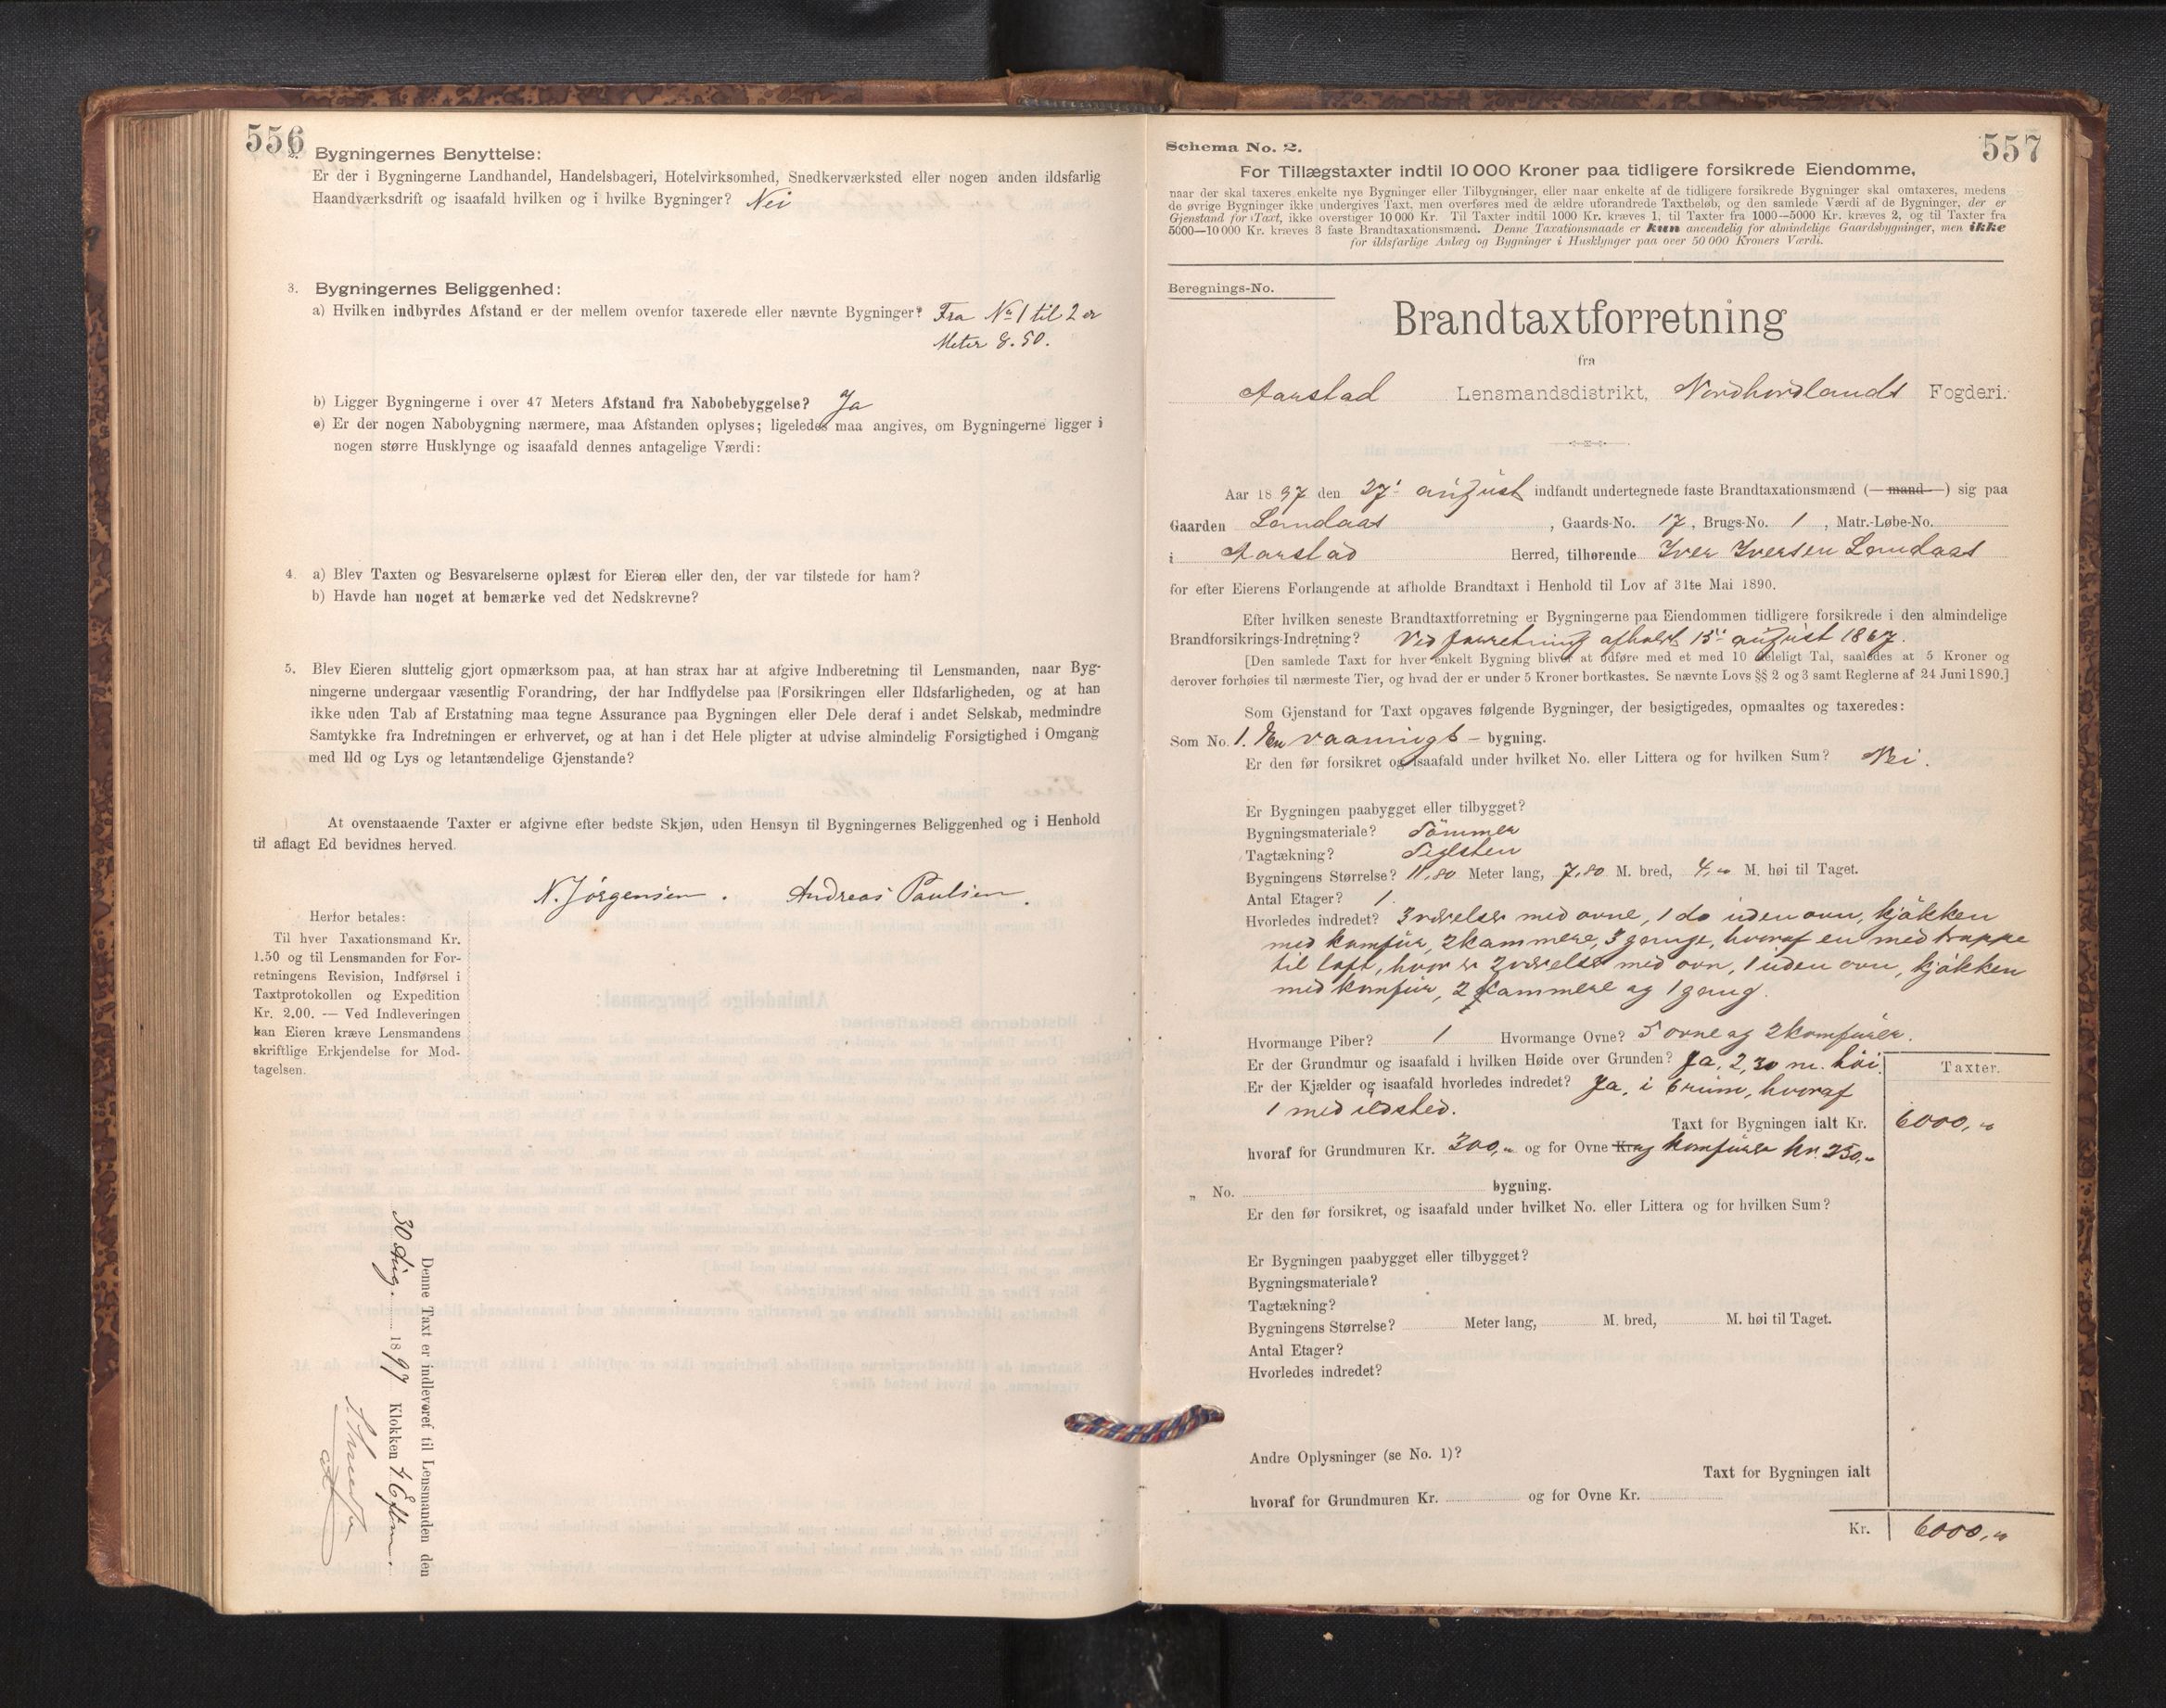 556
2. Bygningernes Benyttelse:
Er der i Bygningerne Landhandel, Handelsbageri, Hotelvirksomhed, Snedkerværksted eller nogen anden ildsfarlig
Haandværksdrift og isaafald hvilken og i hvilke Bygninger? Nei
3. Bygningernes Beliggenhed:
a) Hvilken indbyrdes Afstand er der mellem ovenfor taxerede eller nævnte Bygninger? Fra No 1 til 2 er
Meter 8.50.
b) Ligger Bygningerne i over 47 Meters Afstand fra Nabobebyggelse? Ja
c) Er der nogen Nabobygning nærmere, maa Afstanden oplyses; ligeledes maa angives, om Bygningerne ligger i
nogen større Husklynge og isaafald dennes antagelige Værdi:
4. a) Blev Taxten og Besvarelserne oplæst for Eieren eller den, der var tilstede for ham?
b) Havde han noget at bemærke ved det Nedskrevne?
5. Blev Eieren sluttelig gjort opmærksom paa, at han strax har at afgive Indberetning til Lensmanden, naar Byg-
ningerne undergaar væsentlig Forandring, der har Indflydelse paa Forsikringen eller Ildsfarligheden, og at han
ikke uden Tab af Erstatning maa tegne Assurance paa Bygningen eller Dele deraf i andet Selskab, medmindre
Samtykke fra Indretningen er erhvervet, og at han i det Hele pligter at udvise almindelig Forsigtighed i Omgang
med Ild og Lys og letantændelige Gjenstande?
At ovenstaaende Taxter er afgivne efter bedste Skjøn, uden Hensyn til Bygningernes Beliggenhed og i Henhold
til aflagt Ed bevidnes herved.
N. Jørgensen. Andreas Paulsen.
Herfor betales:
Til hver Taxationsmand Kr.
1.50 og til Lensmanden for For-
retningens Revision, Indførsel i
Taxtprotokollen og Expedition
Kr. 2.00. — Ved Indleveringen
kan Eieren kræve Lensmandens
skriftlige Erkjendelse for Mod-
tagelsen.
Denne Taxt er indleveret til Lensmanden den
30 Aug. 1897 Klokken 7 Eftm.
557
Schema No. 2.
For Tillægstaxter indtil 10 000 Kroner paa tidligere forsikrede Eiendomme,
naar der skal taxeres enkelte nye Bygninger eller Tilbygninger, eller naar enkelte af de tidligere forsikrede Bygninger skal omtaxeres, medens
de øvrige Bygninger ikke undergives Taxt, men overføres med de ældre uforandrede Taxtbeløb, og den samlede Værdi af de Bygninger, der er
Gjenstand for Taxt, ikke overstiger 10 000 Kr. Til Taxter indtil 1000 Kr. kræves 1, til Taxter fra 1000—5000 Kr. kræves 2, og til Taxter fra
5000—10 000 Kr. kræves 3 faste Brandtaxationsmænd. Denne Taxationsmaade er kun anvendelig for almindelige Gaardsbygninger, men ikke
for ildsfarlige Anlæg og Bygninger i Husklynger paa over 50 000 Kroners Værdi.
Beregnings-No.
Brandtaxtforretning
fra
Aarstad Lensmandsdistrikt, Nordhordlands Fogderi.
Aar 1897 den 27' august indfandt undertegnede faste Brandtaxationsmænd (—mand—) sig paa
Gaarden Landaas, Gaards-No. 17, Brugs-No. 1, Matr.-Løbe-No.
i Aarstad Herred, tilhørende Iver Iversen Landaas
for efter Eierens Forlangende at afholde Brandtaxt i Henhold til Lov af 31te Mai 1890.
Efter hvilken seneste Brandtaxtforretning er Bygningerne paa Eiendommen tidligere forsikrede i den almindelige
Brandforsikrings-Indretning? Ved forretning afholdt 15' august 1867.
[Den samlede Taxt for hver enkelt Bygning bliver at udføre med et med 10 deleligt Tal, saaledes at 5 Kroner og
derover forhøies til nærmeste Tier, og hvad der er under 5 Kroner bortkastes. Se nævnte Lovs §§ 2 og 3 samt Reglerne af 24 Juni 1890.]
Som Gjenstand for Taxt opgaves følgende Bygninger, der besigtigedes, opmaaltes og taxeredes:
Som No. 1. En vaanings - bygning.
Er den før forsikret og isaafald under hvilket No. eller Littera og for hvilken Sum? Nei.
Er Bygningen paabygget eller tilbygget?
Bygningsmateriale? Tømmer
Tagtækning? Teglsten
Bygningens Størrelse? 11,80 Meter lang, 7,80 M. bred, 4,„ M. høi til Taget.
Antal Etager? 1.
Hvorledes indredet? 3 værelser med ovne, 1 do uden ovn, kjøkken
med komfur, 2 kammere, 3 gange, hvoraf en med trappe
til loft, hvor er 2 værelser med ovn, 1 uden ovn, kjøkken
med komfur, 2 kammere og 1 gang.
Hvormange Piber? 1 Hvormange Ovne? 5 ovne og 2 komfurer.
Er der Grundmur og isaafald i hvilken Høide over Grunden? Ja, 2,30 m. høi.
Taxter.
Er der Kjælder og isaafald hvorledes indredet? Ja, i 6 rum, hvoraf
1 med ildsted.
Taxt for Bygningen ialt Kr. 6000,„
hvoraf for Grundmuren Kr. 300,„ og for Ovne Kr. og komfurer kr. 250,„
„ No. bygning.
Er den før forsikret, og isaafald under hvilket No. eller Littera og for hvilken Sum?
Er Bygningen paabygget eller tilbygget?
Bygningsmateriale?
Tagtækning?
Bygningens Størrelse? Meter lang, M. bred, M. høi til Taget.
Antal Etager?
Hvorledes indredet?
Andre Oplysninger (se No. 1)?
Taxt for Bygningen ialt
hvoraf for Grundmuren Kr. og for Ovne Kr.
Kr. 6000,„